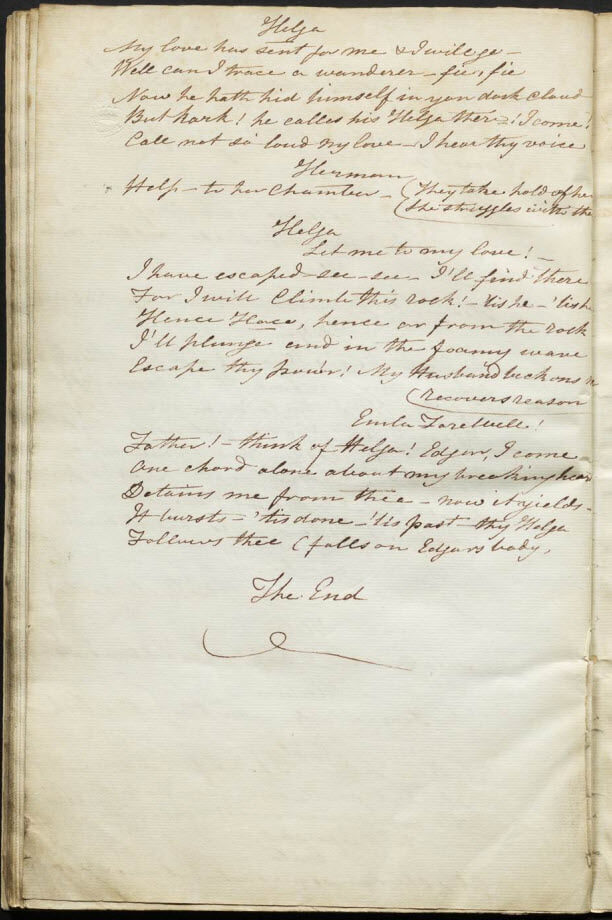 Helga
My love has sent for me & I will go –
Well can I trace a wanderer – fie, fie
Now he hath hid himself in yon dark cloud
But hark! he calls his Helga there! I come!
Call not so loud my love – I hear thy voice
Herman
Help – to her Chamber – (They take hold of he
(She struggles with the
Helga
Let me to my love! –
I have escaped – see – see – I'll find there
For I will Climb this rock! – 'tis he – 'tis he
Hence Haco, hence or from the rock
I'll plunge and in the foamy wave
Escape thy power! My Husband beckons
(recovers reason
Emla Farewell!
Father! – think of Helga! Edgar, I come –
One chord alone about my breaking hear
Detains me from thee – now it yields –
It bursts – 'tis done – 'tis past thy Helga
Follows thee (falls on Edgars body,
The End